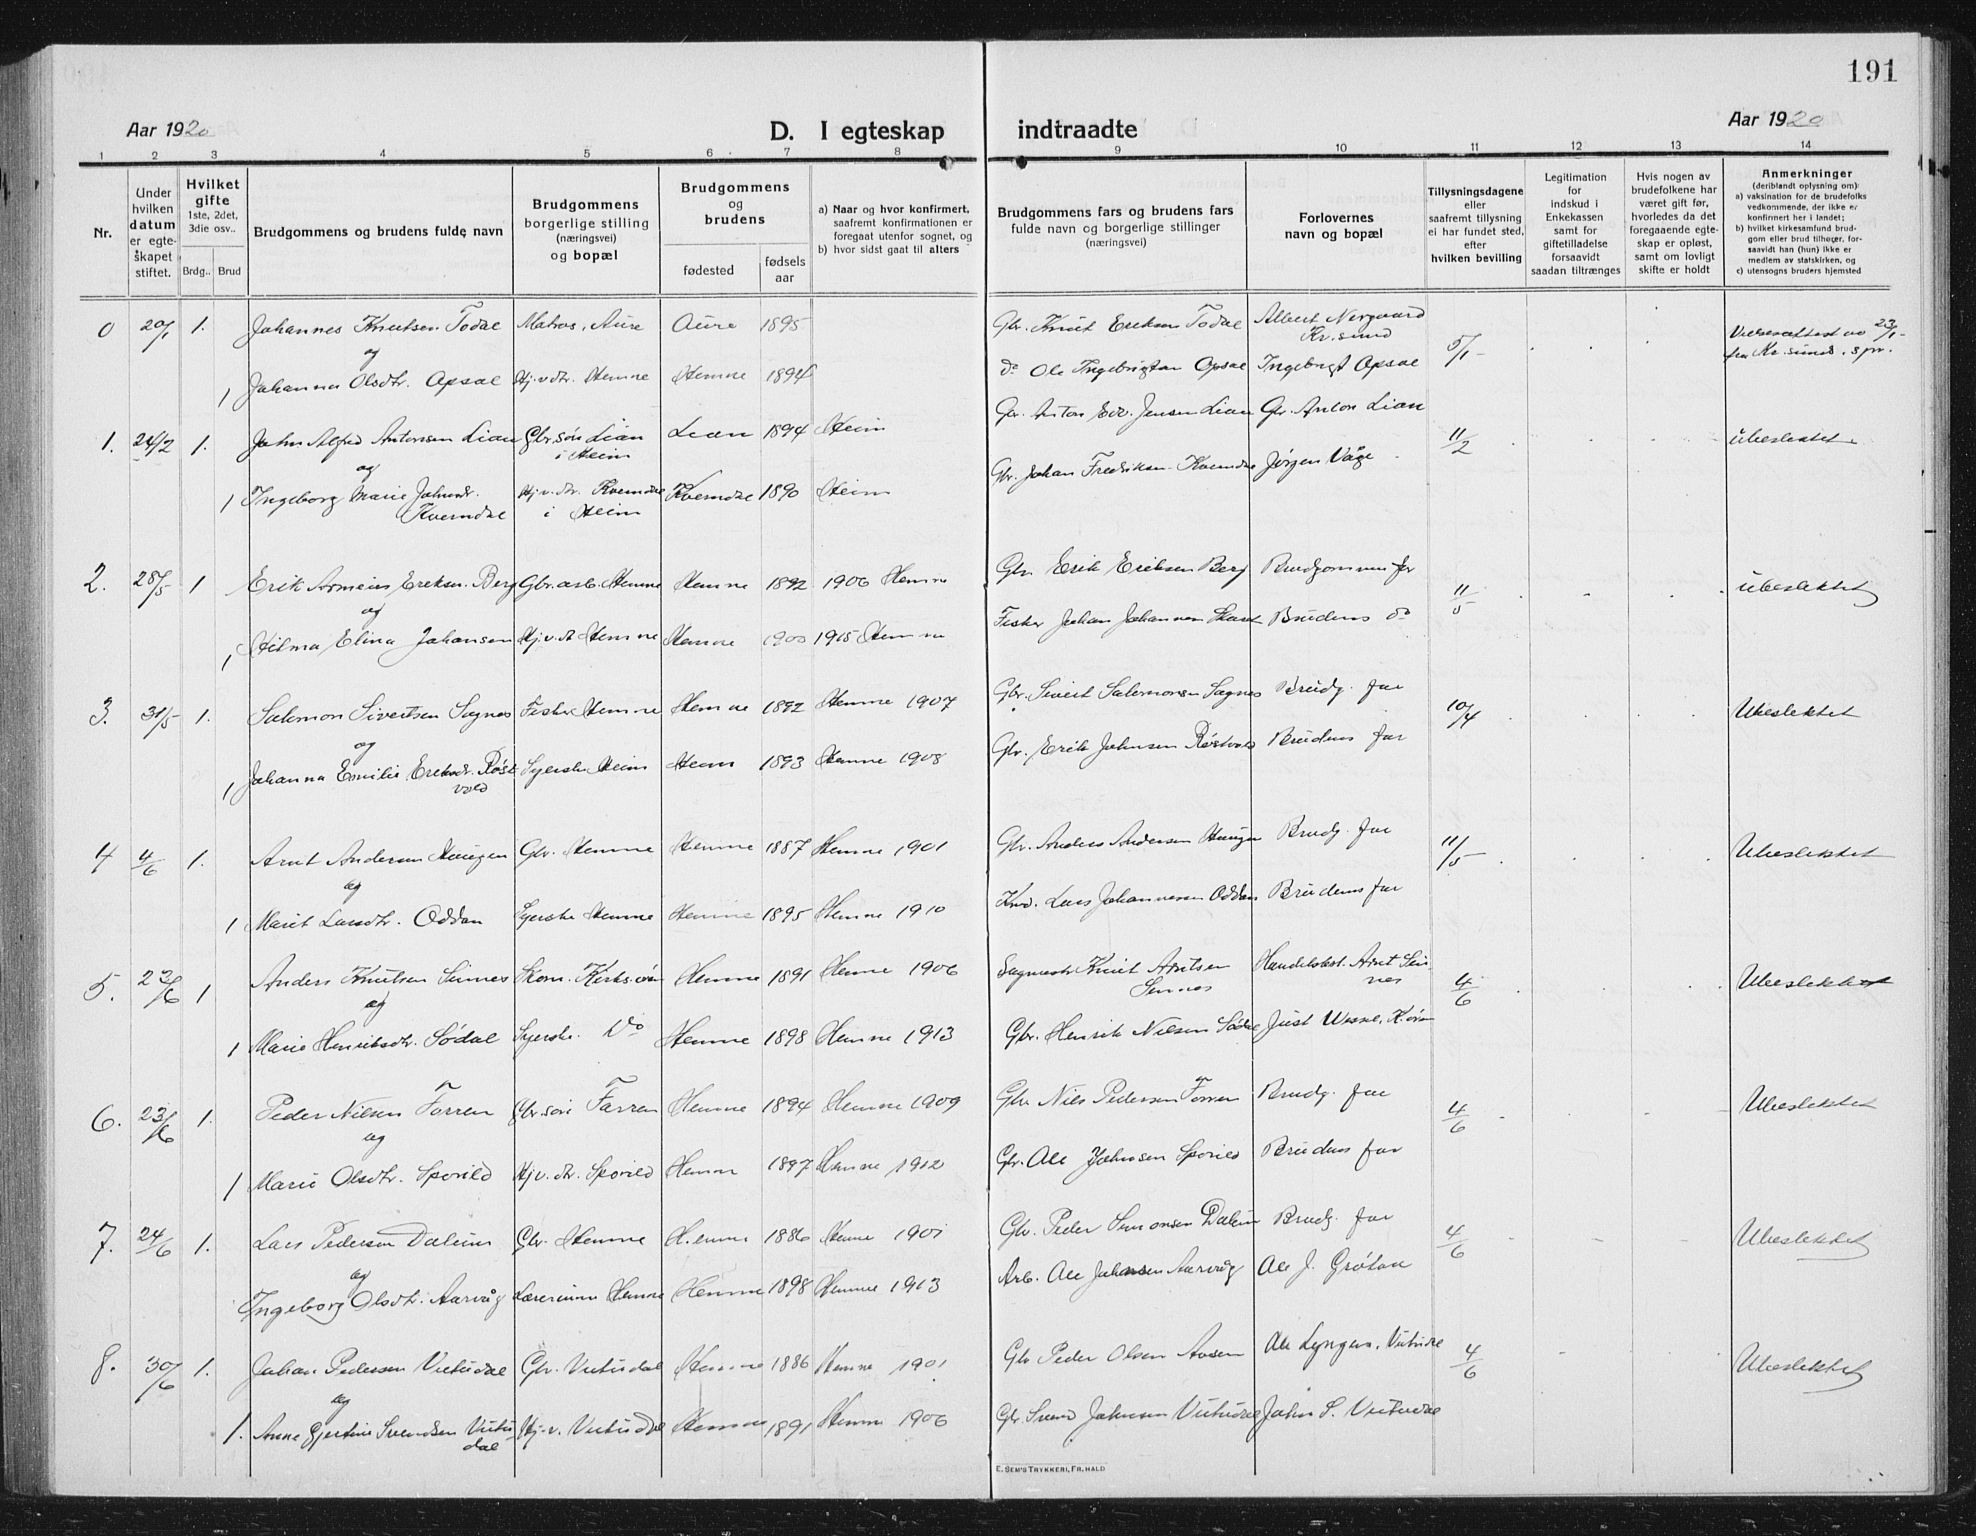 191
Aar 1920
D. I egteskap indtraadte
Aar 1920
1 2 3 4 5 6 7 8 9 10 11 12 13 14
Nr.
Under hvilken datum er egteskapet stiftet.
Hvilket gifte 1ste, 2det, 3die osv..
Brdg.. Brud
Brudgommens og brudens fulde navn
Brudgommens borgerlige stilling (næringsvei) og bopæl
Brudgommens og brudens
fødested
fødsels aar
a) Naar og hvor konfirmert, saafremt konfirmationen er foregaat utenfor sognet, og
b) hvor sidst gaat til alters
Brudgommens fars og brudens fars fulde navn og borgerlige stillinger (næringsvei)
Forlovernes navn og bopæl
Tillysningsdagene eller saafremt tillysning ei har fundet sted, efter hvilken bevilling
Legitimation for indskud i Enkekassen samt for giftetilladelse forsaavidt saadan tiltrænges
Hvis nogen av brudefolkene har været gift før, hvorledes da det foregaaende egteskap er opløst, samt om lovligt skifte er holdt
Anmerkninger
(deriblandt oplysning om:
a) vaksination for de brudefolks vedkommende, der ikke er konfirmert her i landet;
b) hvilket kirkesamfund brudgom eller brud tilhører, forsaavidt han (hun) ikke er medlem av statskirken, og
c) utensogns bruders hjemsted
0 20/1 1. Johannes Knutsen Todal Matros, Aure Aure 1895 Gbr. Knut Eriksen Todal Albert Nergaard Kr.sund 5/1 - 23/1 - fra Kr.sund. s pr.
og
1 Johanna Olsdtr. Opsal Hj.v.dtr. Hemne Hemne 1894 do Ole Ingebrigtsen Opsal Ingebrigt Opsal
1. 24/2 1. John Alfred Antonsen Lian Gbr.søn Lian i Heim Lian 1894 Heim Gbr. Anton Edv. Jensen Lian Gbr. Anton Lian 11/2 ubeslektet
og
1 Ingeborg Marie Johnsdr. Kverndal Hj.v.dtr. Kverndal i Heim Kverndal 1890 Heim Gbr. Johan Fredriksen Kverndal Jørgen Våge
2. 28/5 1 Erik Eriksen Berg Gbr.arb. Hemne Hemne 1892 1906 Hemne Gbr. Erik Eriksen Berg Brudgommens far 11/5 ubeslektet
og
1 Hilma Elina Johansen Hj.v.dt. Hemne Hemne 1900 1915 Hemne Fisker Johan Johannesen Brudens do
3. 31/5 1. Salomon Sivertsen Sagnes Fisker Hemne Hemne 1892 Hemne 1907 Gbr. Sivert Salomonsen Sagnes Brudg. far 10/4 Ubeslektet
og
1 Johanna Emilie Eriksdr. Røstvold Syerske Heim Heim 1893 Hemne 1908 Gbr. Erik Johnsen Røstvold Brudens far
4 4/6 1. Arnt Andersen Haugen Gbr. Hemne Hemne 1887 Hemne 1901 Gbr. Anders Andersen Haugen Brudg. far 11/5 Ubeslektet
og
1 Marit Larsdtr. Oddan Syerske Hemne Hemne 1895 Hemne 1910 Lars Johannesen Oddan Brudens far
5. 23/6 1 Anders Knutsen Sinnes Skom. Hemne 1891 Hemne 1906 Sagmester Knut Arntsen Sinnes Handelsbest. Arnt Sinnes 4/6 Ubeslektet
og
1 Marie Henriksdtr. Sødal Syerske. Do Hemne 1898 Hemne 1913 Gbr. Henrik Nilsen Sødal Just Wessel,
6. 23/6 1. Peder Nilsen Forren Gbr.søn Forren Hemne 1894 Hemne 1909 Gbr. Nils Pedersen Forren Brudg. far 4/6 Ubeslektet
og
1 Marie Olsdtr. Sporild Hj.v.dtr. Sporild Hemne 1897 Hemne 1912 Gbr. Ole Johnsen Sporild Brudens far
7. 24/6 1. Lars Pedersen Dalum Gbr. Hemne Hemne 1886 Hemne 1901 Gbr. Peder Simonsen Dalum Brudg. far 4/6 Ubeslektet
og
Ingeborg Olsdtr. Aarvåg Lærerinne Hemne Hemne 1898 Hemne 1913 Arb. Ole Johansen Aarvåg Ole J. Grøtan
8. 30/6 1. Johan Pedersen Vitsudal Gbr. Vitsudal Hemne 1886 Hemne 1901 Gbr Peder Olsen Aasen Ole Lyngen, 4/6 Ubeslektet
og
1. Anne Gjertine Svendsen Vitsudal Hj.v. Vitsudal Hemne 1891 Hemne 1906 Gbr. Svend Johnsen Vitsudal John S. Vitsudal
E. SEM'S TRYKKERI, FR.HALD